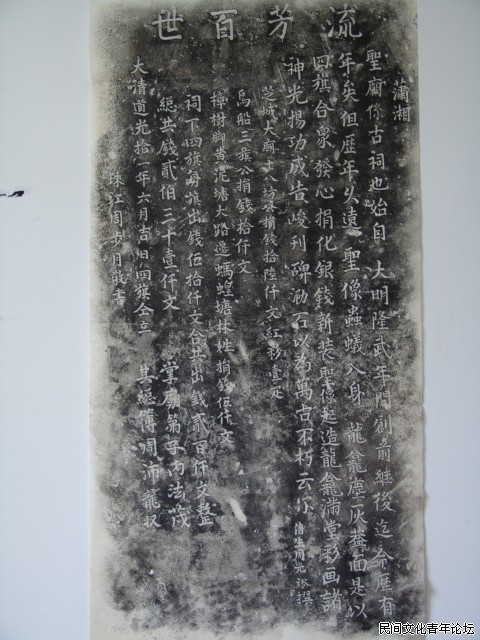 流芳百世
瀟湘
聖廟係古祠也始自大明隆武年間創前継後迄今歷有
年矣但歷年久遠聖像蟲蟻入身龍龕塵灰葢面是以
四旗合衆發心捐化銀錢新裝聖像起造龍龕滿堂彩画諸
神光揚功成告峻刊碑泐石以為萬古不朽云尒 信生周光 撰
芝城大廟 捐錢拾陸仟文紅彩壹疋
烏船三旗公捐錢拾仟文
樟樹脚黄泥塘大路邉螞蝗塘林姓捐錢伍仟文
祠下四旗每旗出錢伍拾仟文合共出錢貳百仟文整
總共錢貳伯三十壹仟文 掌廟弟子 法茂
大清道光拾一年六月吉旦四旗仝立 其總簿周沛龍收
珠江周步月敬書
民间文化青年论坛